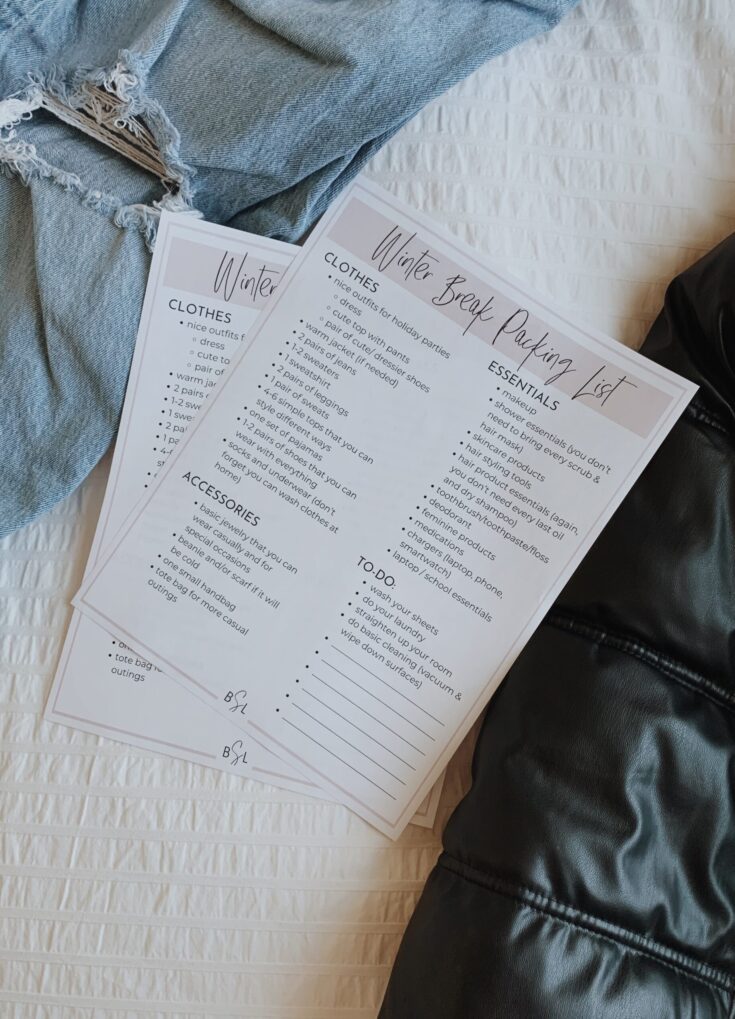 Winter Break Packing List
CLOTHES
• nice outfits for holiday parties
○ dress
○ cute top with pants
○ pair of cute/ dressier shoes
• warm jacket (if needed)
• 2 pairs of jeans
• 1-2 sweaters
• 1 sweatshirt
• 2 pairs of leggings
• 1 pair of sweats
• 4-6 simple tops that you can
style different ways
• one set of pajamas
• 1-2 pairs of shoes that you can
wear with everything
• socks and underwear (don't
forget you can wash clothes at
home)
ACCESSORIES
• basic jewelry that you can
wear casually and for
special occasions
• beanie and/or scarf if it will
be cold
• one small handbag
• tote bag for more casual
outings
ESSENTIALS
• makeup
• shower essentials (you don't
need to bring every scrub &
hair mask)
• skincare products
• hair styling tools
• hair product essentials (again,
you don't need every last oil
and dry shampoo)
• toothbrush/toothpaste/floss
• deodorant
• feminine products
• medications
• chargers (laptop, phone,
smartwatch)
• laptop / school essentials
TO-DO:
• wash your sheets
• do your laundry
• straighten up your room
• do basic cleaning (vacuum &
wipe down surfaces)
BSL
Winter
CLOTHES
• nice outfits f
○ dress
○ cute to
○ pair of
• warm ja
• 2 pairs
• 1-2 sw
• 1 swe
• 2 pai
• 1 pa
• 4-
• on
• tote bag
outings
BSL